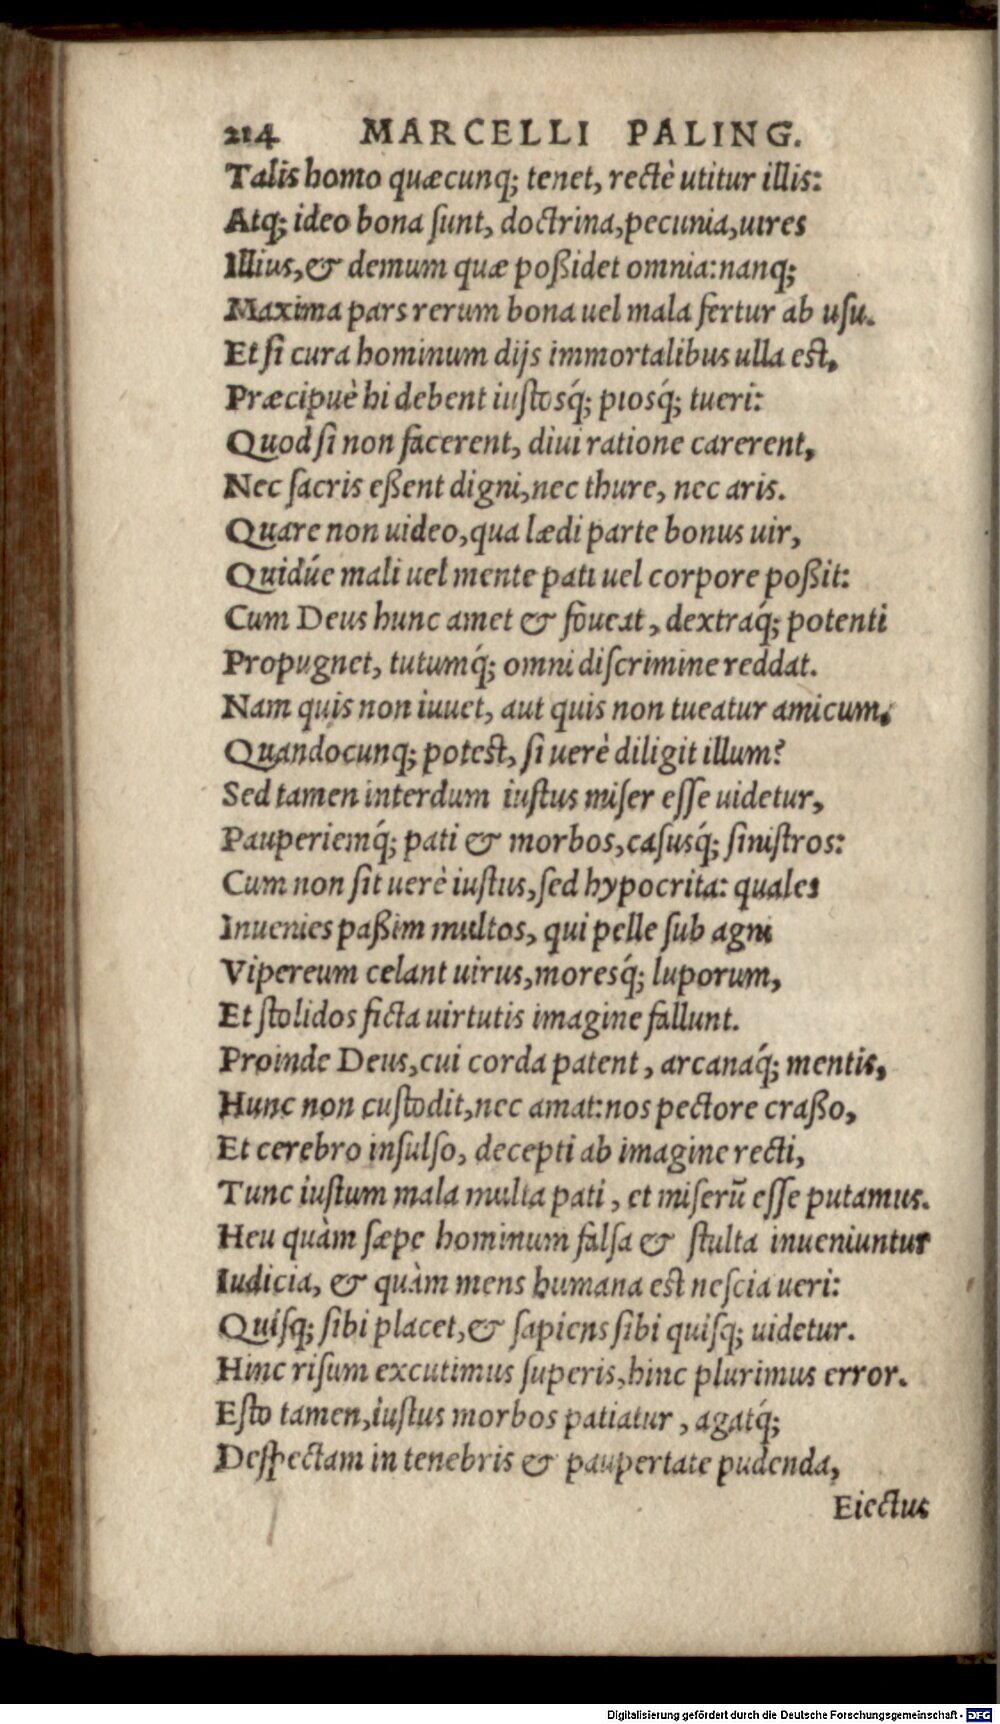 214 MARCELLI PALING.
Talis homo quæcunq; tenet, rectè utitur illis:
Atq; ideo bona sunt, doctrina, pecunia, uires
Illius, & demum quæ poßidet omnia: nanq;
Maxima pars rerum bona uel mala fertur ab usu.
Et si cura hominum dijs immortalibus ulla est,
Præcipuè hi debent iustosq́; piosq́; tueri:
Quod si non facerent, diui ratione carerent,
Nec sacris eßent digni, nec thure, nec aris.
Quare non uideo, qua lædi parte bonus uir,
Quidúe mali uel mente pati uel corpore poßit:
Cum Deus hunc amet & foueat, dextraq́; potenti
Propugnet, tutumq́; omni discrimine reddat.
Nam quis non iuuet, aut quis non tueatur amicum,
Quandocunq; potest, si uerè diligit illum?
Sed tamen interdum iustus miser esse uidetur,
Pauperiemq́; pati & morbos, casusq́; sinistros:
Cum non sit uerè iustus, sed hypocrita: quales
Inuenies paßim multos, qui pelle sub agni
Vipereum celant uirus, moresq́; luporum,
Et stolidos ficta uirtutis imagine fallunt.
Proinde Deus, cui corda patent, arcanaq́; mentis,
Hunc non custodit, nec amat: nos pectore craßo,
Et cerebro insulso, decepti ab imagine recti,
Tunc iustum mala multa pati, et miserū esse putamus.
Heu quàm sæpe hominum falsa & stulta inueniuntur
Iudicia, & quàm mens humana est nescia ueri:
Quisq; sibi placet, & sapiens sibi quisq; uidetur.
Hinc risum excutimus superis, hinc plurimus error.
Esto tamen, iustus morbos patiatur, agatq́;
Despectam in tenebris & paupertate pudenda,
Eiectus
Digitalisierung gefördert durch die Deutsche Forschungsgemeinschaft - DFG